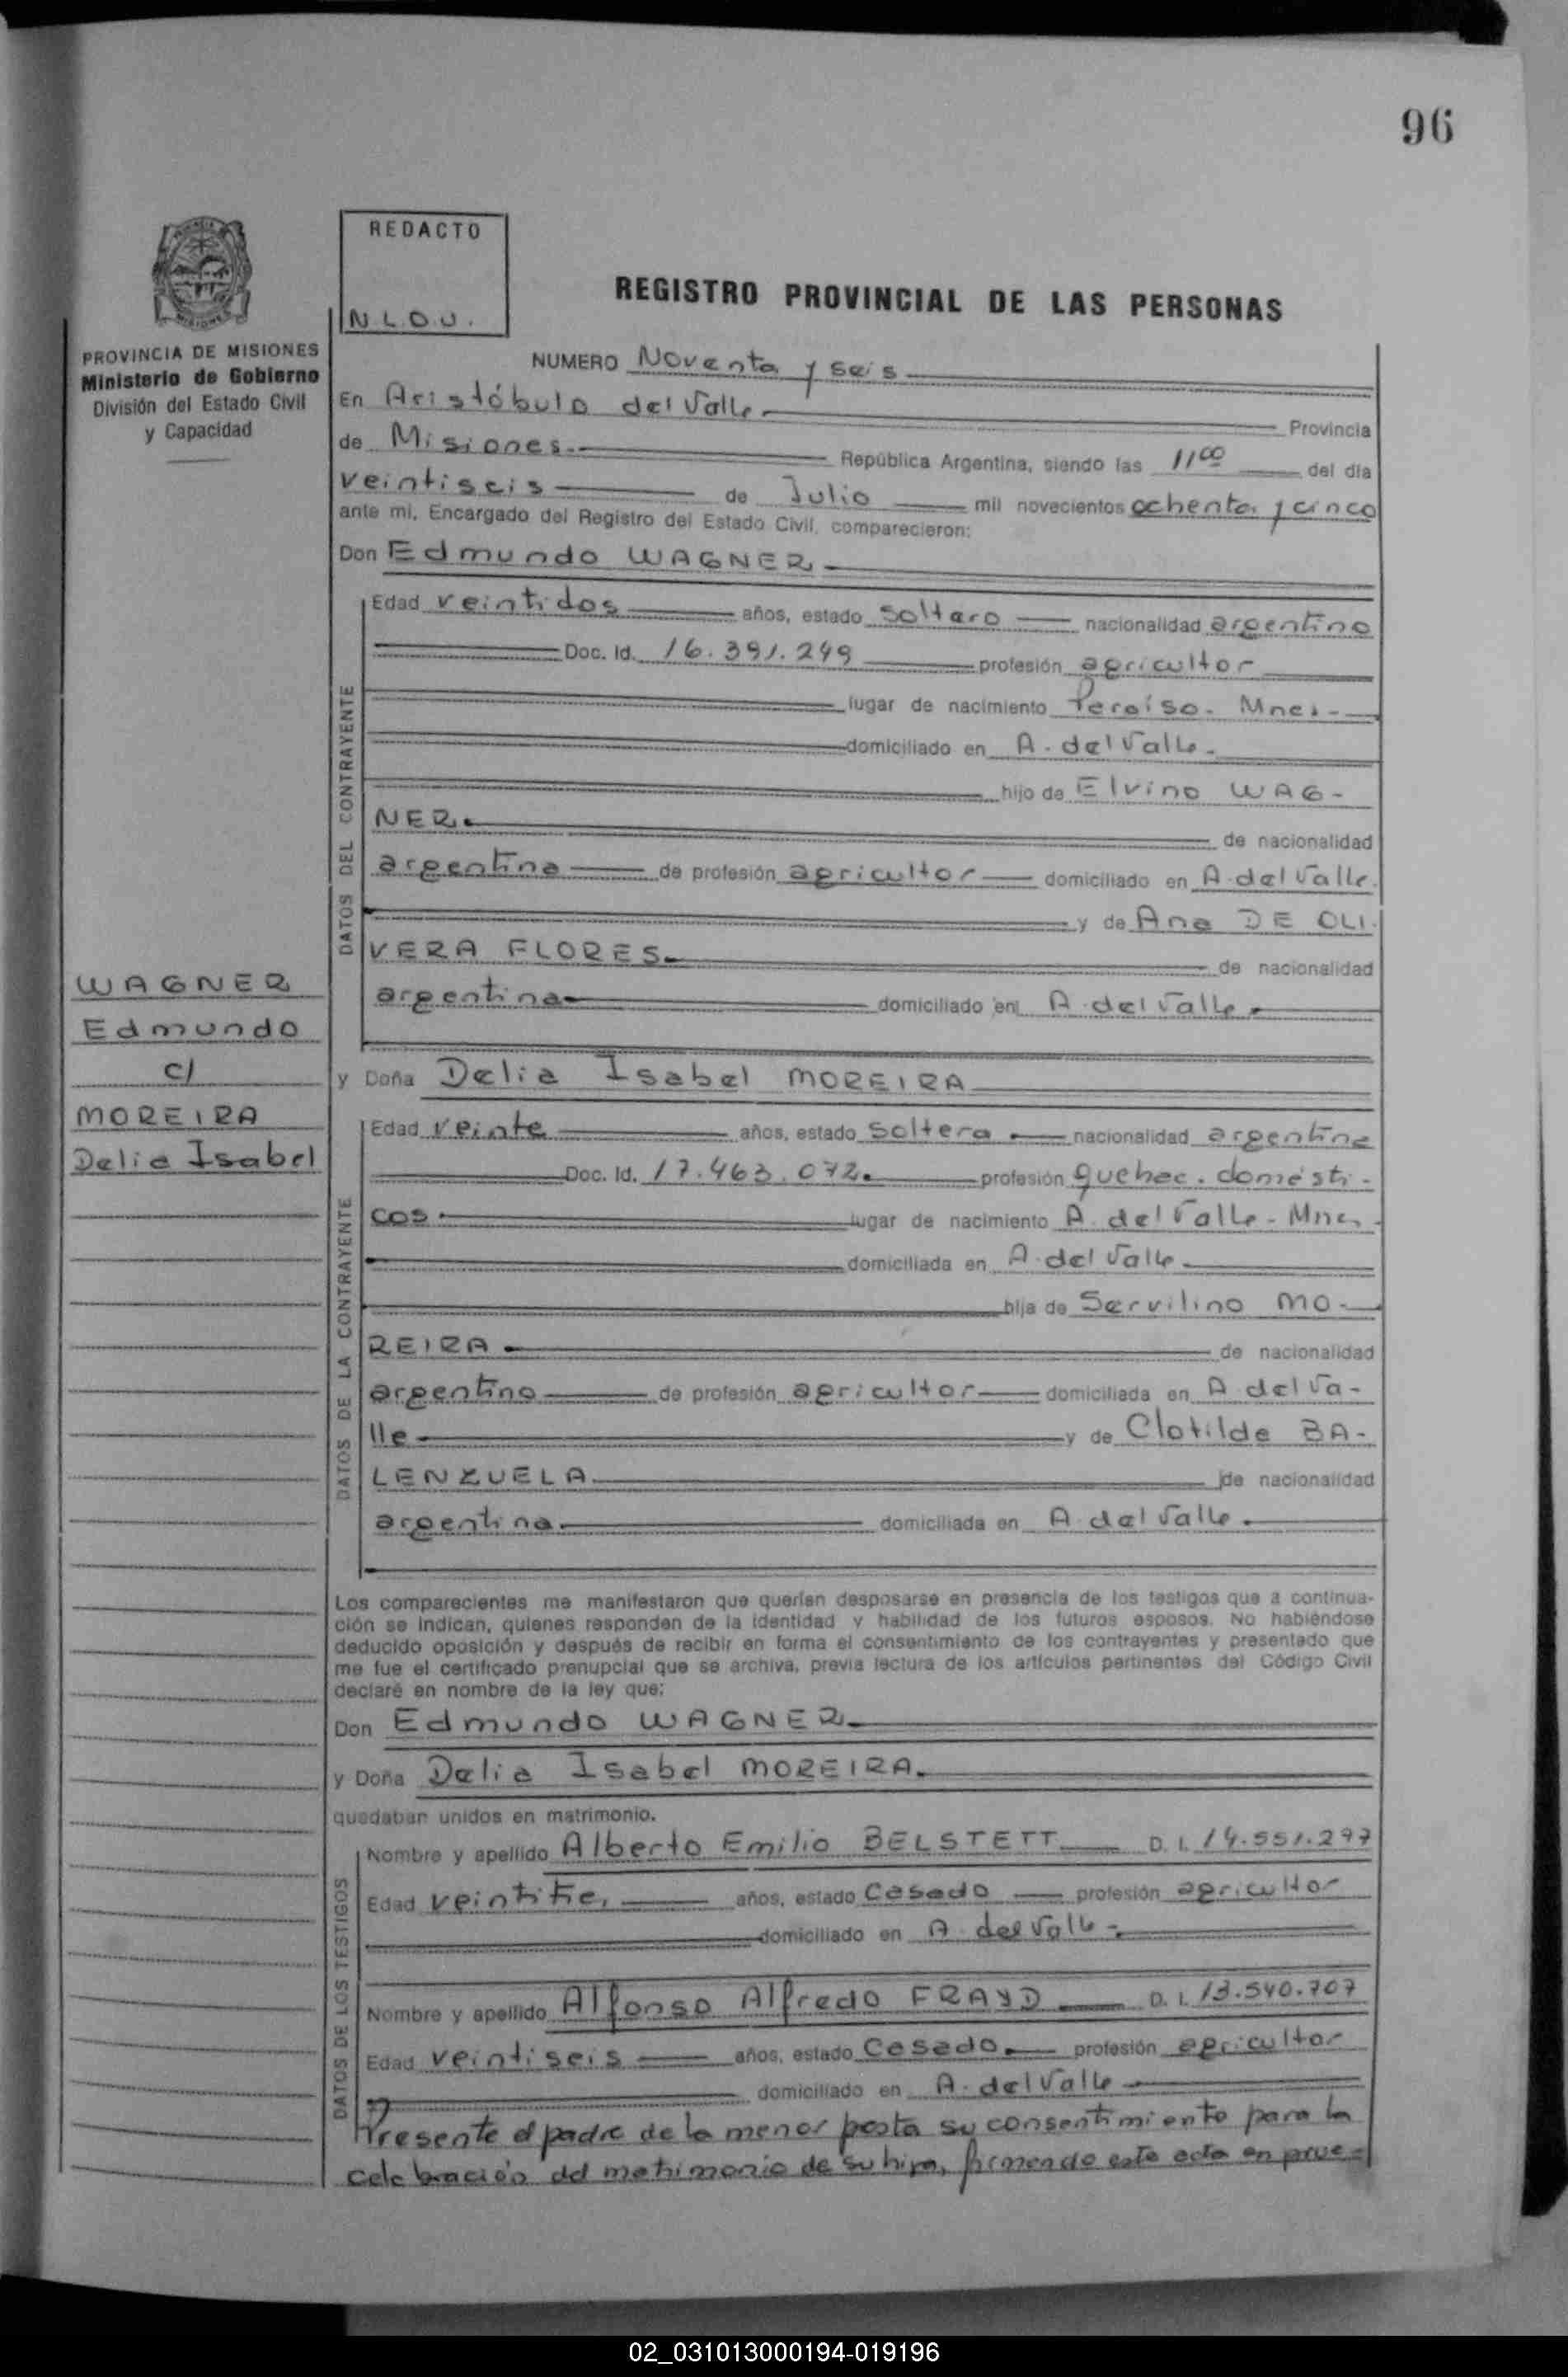 96
REDACTO
N.L.O.U.
REGISTRO PROVINCIAL DE LAS PERSONAS
PROVINCIA DE MISIONES
Ministerio de Gobierno
División del Estado Civil
y Capacidad
NUMERO Noventa y seis
En Aristóbulo del Valle. Provincia
de Misiones. República Argentina, siendo las 11 00 del día
veintiseis de Julio mil novecientos ochenta y cinco
ante mi, Encargado del Registro del Estado Civil, comparecieron:
Don Edmundo WAGNER.
DATOS DEL CONTRAYENTE
Edad veintidos años, estado soltero nacionalidad argentino
Doc. Id. 16.391.249 profesión agricultor
lugar de nacimiento Peraíso. Mnes.
domiciliado en A. del Valle.
hijo de Elvino WAG-
NER. de nacionalidad
argentina de profesión agricultor domiciliado en A. del Valle.
y de Ana DE OLI-
VERA FLORES. de nacionalidad
argentina. domiciliado en A. del Valle.
WAGNER
Edmundo
c/
MOREIRA
Delia Isabel
y Doña Delia Isabel MOREIRA
DATOS DE LA CONTRAYENTE
Edad veinte años, estado soltera nacionalidad argentina
Doc. Id. 17.463.072. profesión quehac. domésti-
cos. lugar de nacimiento A. del Valle - Mnes.
domiciliada en A. del Valle
hija de Servilino MO-
REIRA. de nacionalidad
argentino de profesión agricultor domiciliada en A. del Va-
lle y de Clotilde BA-
LENZUELA de nacionalidad
argentina. domiciliada en A. del Valle.
Los comparecientes me manifestaron que querían desposarse en presencia de los testigos que a continua-
ción se indican, quienes responden de la identidad y habilidad de los futuros esposos. No habiéndose
deducido oposición y después de recibir en forma el consentimiento de los contrayentes y presentado que
me fue el certificado prenupcial que se archiva, previa lectura de los artículos pertinentes del Código Civil
declaré en nombre de la ley que:
Don Edmundo WAGNER.
y Doña Delia Isabel MOREIRA.
quedaban unidos en matrimonio.
DATOS DE LOS TESTIGOS
Nombre y apellido Alberto Emilio BELSTETT D. I. 14.551.297
Edad veintitres años, estado casado profesión agricultor
domiciliado en A. del Valle.
Nombre y apellido Alfonso Alfredo FRAYD D. I. 13.540.707
Edad veintiseis años, estado casado. profesión agricultor
domiciliado en A. del Valle
Presente el padre de la menor presta su consentimiento para la
celebración del matrimonio de su hija, firmando este acta en prue-
02_031013000194-019196